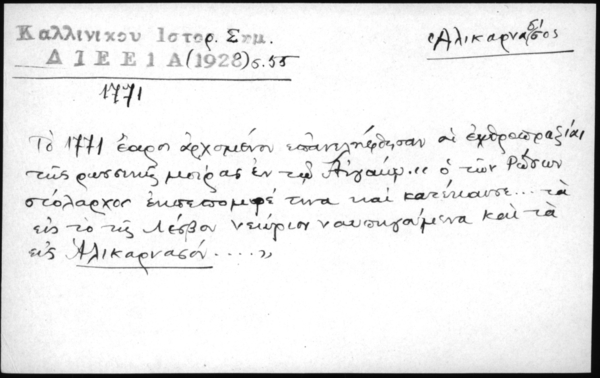 Καλλινίκου Ιστορ. Σημ.
Δ Ι Ε Ε 1 Α (1928) σ. 55
Ἁλικαρνασσος
1771
Τὸ 1771 ἔαρος ἀρχομένου ἐπανελήφθησαν αἱ ἐχθροπραξίαι
τῆς ρωσικῆς μοίρας ἐν τῷ Αἰγαίῳ. « ὁ τῶν Ρώσων
στόλαρχος ἐκπεπομφέ τινα καὶ κατέκαυσε... τὰ
εἰς τὸ τῆς Λέσβου νεώριον ναυπηγούμενα καὶ τὰ
εἰς Ἁλικαρνασόν ..... »